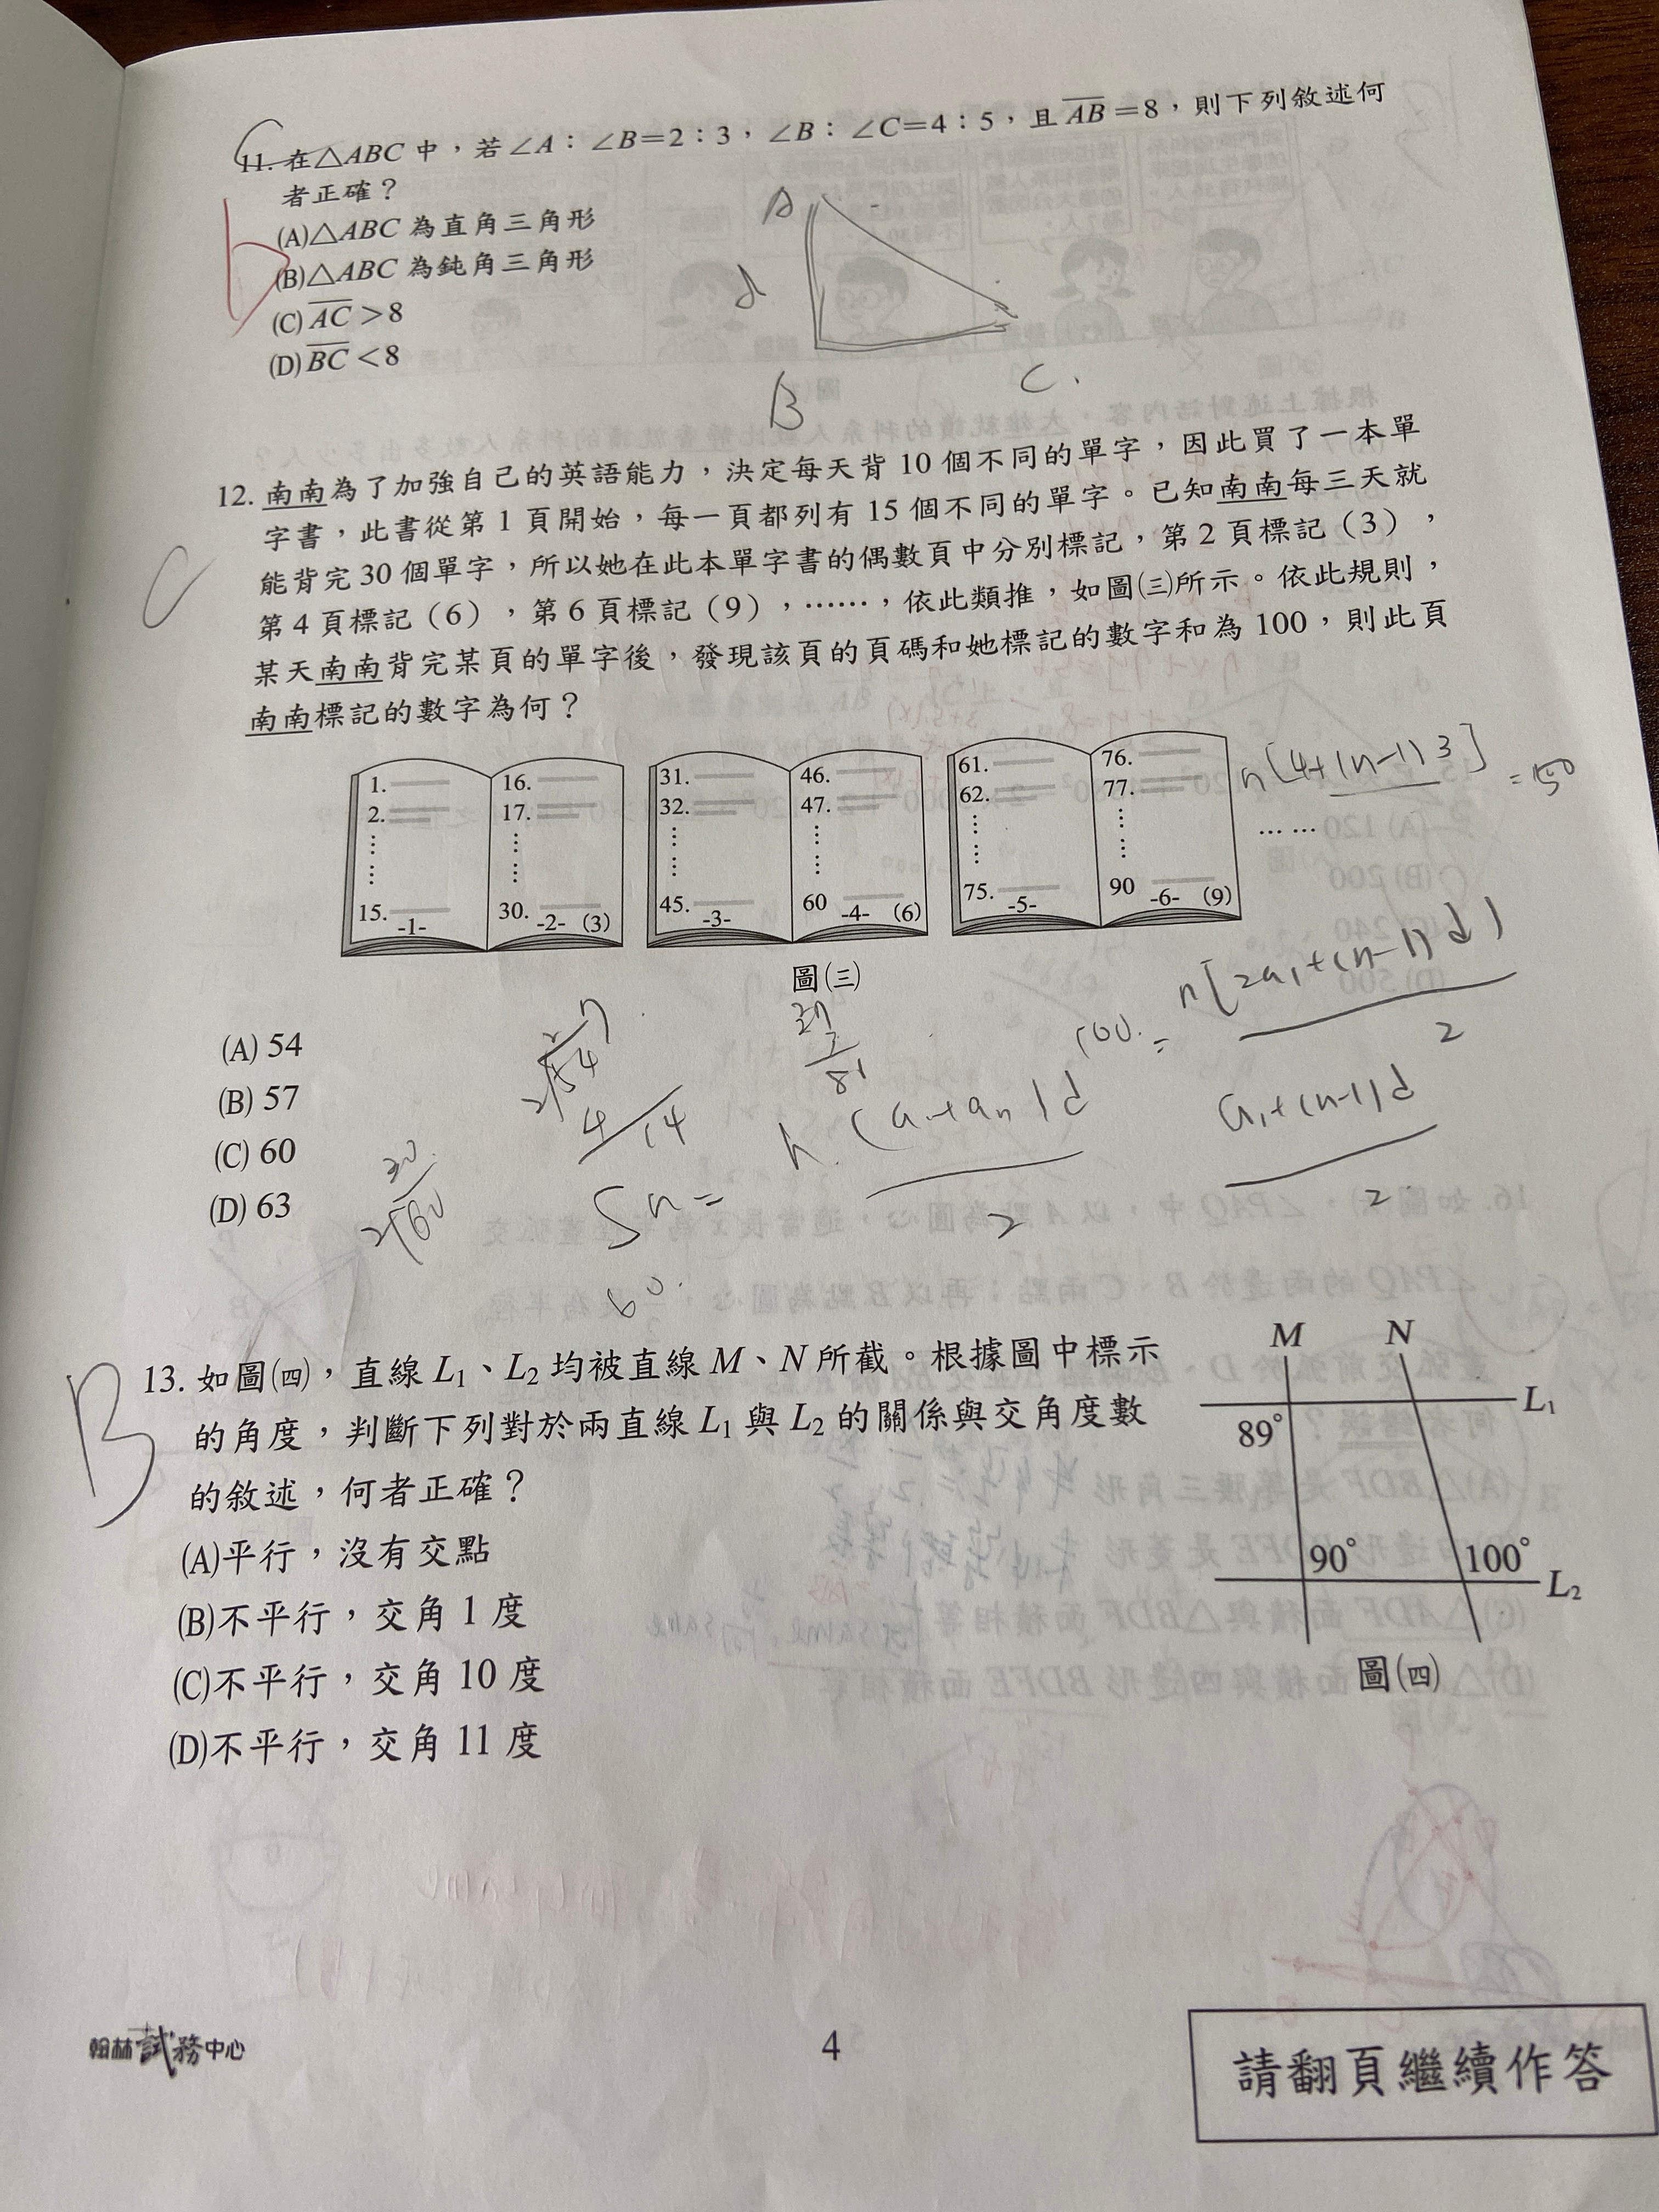 11. 在△ABC 中，若∠A：∠B=2：3，∠B：∠C=4：5，且 AB=8，則下列敘述何
者正確？
(A)△ABC 為直角三角形
(B)△ABC 為鈍角三角形
(C) AC >8
(D) BC <8
A
d
B
C.
12. 南南為了加強自己的英語能力，決定每天背 10 個不同的單字，因此買了一本單
字書，此書從第 1 頁開始，每一頁都列有 15 個不同的單字。已知南南每三天就
能背完 30 個單字，所以她在此本單字書的偶數頁中分別標記，第 2 頁標記（3），
第 4 頁標記（6），第 6 頁標記（9），……，依此類推，如圖㈢所示。依此規則，
某天南南背完某頁的單字後，發現該頁的頁碼和她標記的數字和為 100，則此頁
南南標記的數字為何？
C
1.
2.
15.
-1-
16.
17.
30.
-2- (3)
31.
32.
45.
-3-
46.
47.
60
-4- (6)
61.
62.
75.
-5-
76.
77.
90
-6- (9)
……
n[4+(n-1)3] = 150
圖㈢
(A) 54
(B) 57
(C) 60
(D) 63
100. = n[2a1+(n-1)d] / 2
Sn = n.(a1+an)d / 2
a1+(n-1)d / 2
30
2)60
60.
B
13. 如圖㈣，直線 L1、L2 均被直線 M、N 所截。根據圖中標示
的角度，判斷下列對於兩直線 L1 與 L2 的關係與交角度數
的敘述，何者正確？
(A)平行，沒有交點
(B)不平行，交角 1 度
(C)不平行，交角 10 度
(D)不平行，交角 11 度
M N
L1
89°
90° 100°
L2
圖㈣
翰林試務中心
4
請翻頁繼續作答